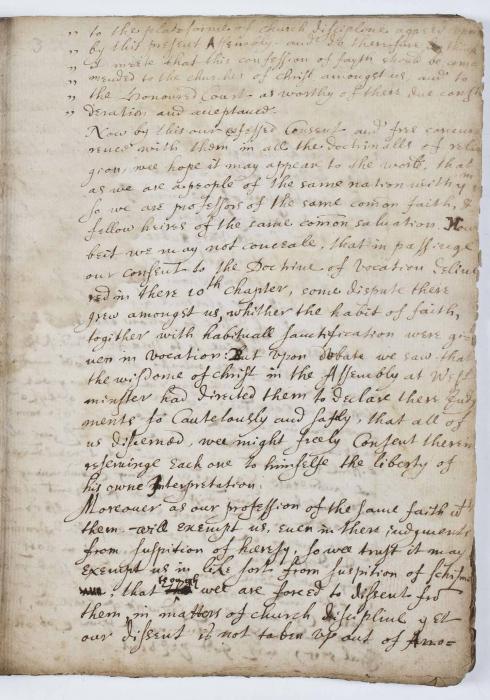 " to the platforme of church discipline agreed upon
" by this present Assembly. and do therefore think
" it meete that this confession of fayth should be com̄
" mended to the churches of Christ amongst us, and to
" the Honoured Court. as worthy of there due consi
" deration and acceptance.
Now by this our professed Consent and free concur
rence with them in all the doctrinalls of reli
gion, wee hope it may appear to the world, that
as we are a people of the same nation with ym
so we are professors of the same com̄on faith, &
fellow heires of the same com̄on salvation. How
beit we may not conceale, that in passinge
our consent to the Doctrine of Vocation delive
red in there 10th chapter, some dispute there
grew amongst us, whither the habit of faith,
together with habituall sanctification were gi
ven in vocation: But upon debate we saw that
the wisdome of christ in the Assembly at West
minster had directed them to declare there Judg
ments so Cautelously and safly, that all of
us discerned, wee might freely Consent therein
reservinge Each one to himselfe the liberty of
his owne Interpretation.
Moreover as our profession of the same faith wth
them will exempt us, even in there iudgments
from suspition of hæresy, so wee trust it may
exempt us in like sort from suspition of schisme
: that though wee are forced to dissent fro
them in matters of church discipline yet
our dissent is not taken up out of Arro=